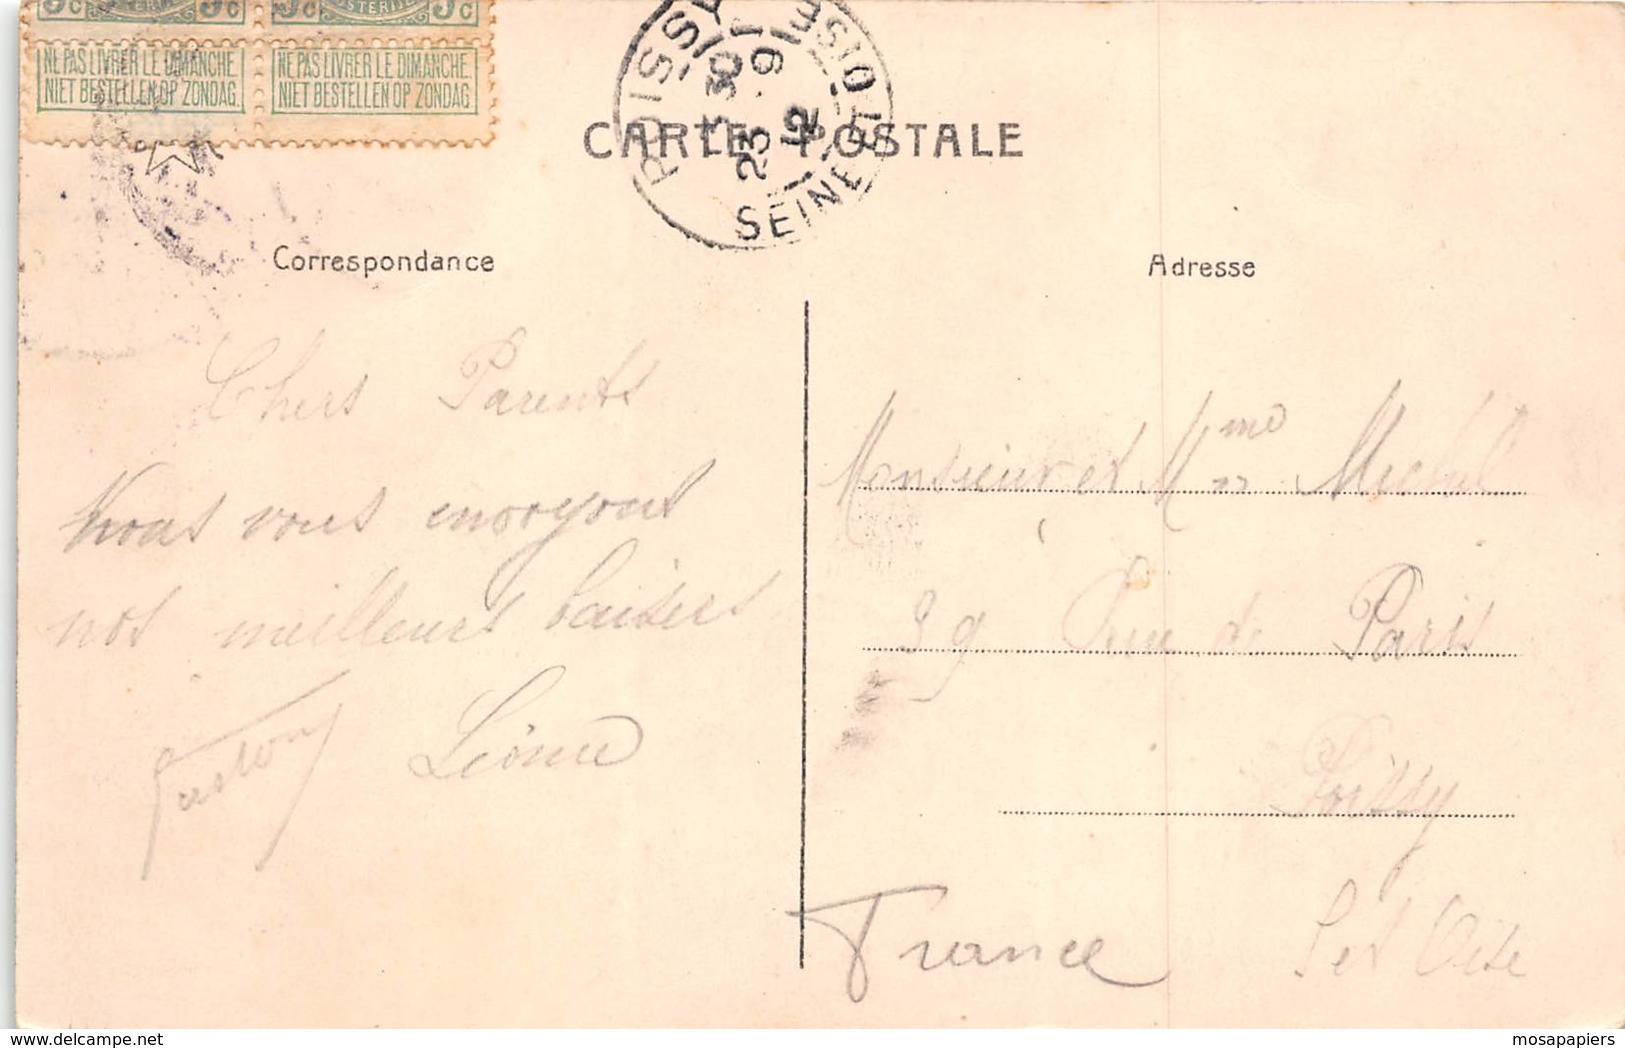 5c 5c 5c 5c
NE PAS LIVRER LE DIMANCHE NE PAS LIVRER LE DIMANCHE
NIET BESTELLEN OP ZONDAG NIET BESTELLEN OP ZONDAG
POISSY
30
23 - 9
12
SEINE ET OISE
CARTE POSTALE
Correspondance
Adresse
Chers Parents
Nous vous envoyons
nos meilleurs baisers
Gaston Léonie
Monsieur et Mme Michel
39 Rue de Paris
Poissy
S et Oise
France
mosapapiers